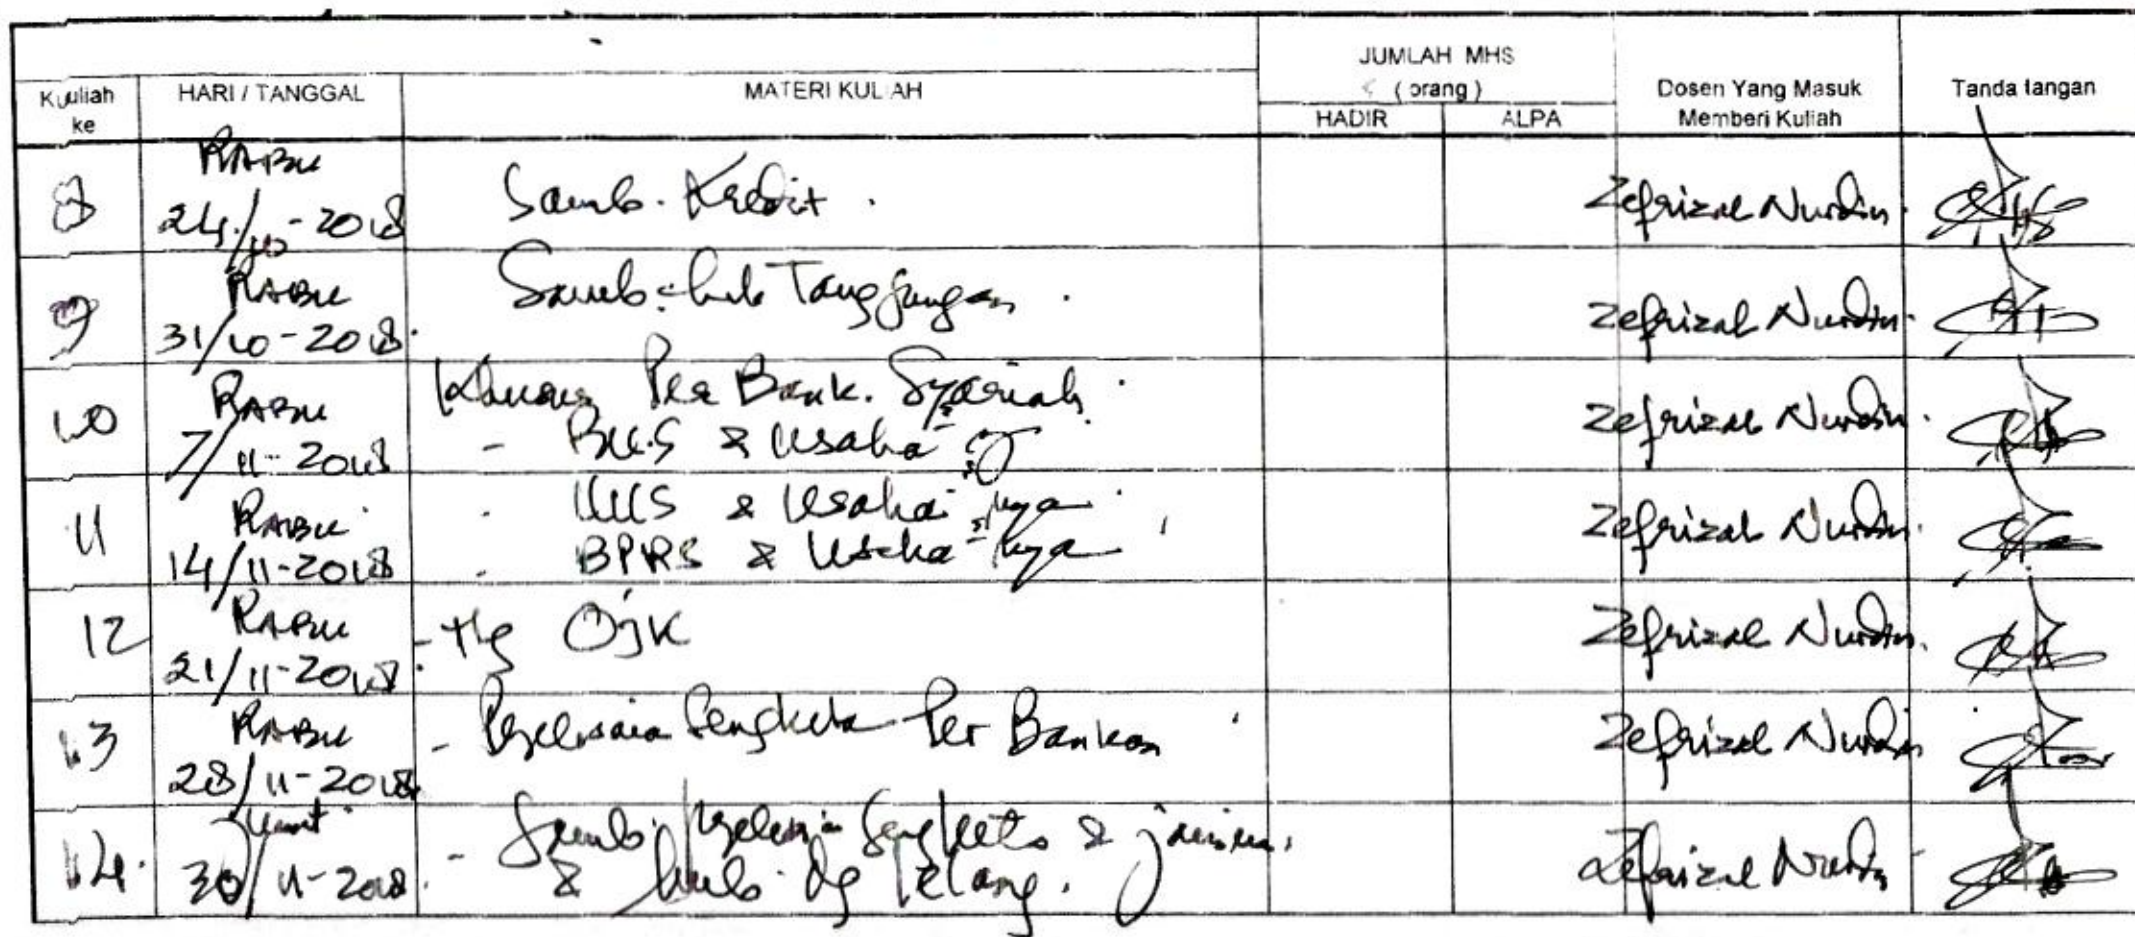 JUMLAH MHS
( orang )
Kuuliah ke
HARI / TANGGAL
MATERI KULIAH
HADIR
ALPA
Dosen Yang Masuk
Memberi Kuliah
Tanda tangan
8
RABU
24/10-2018
Samb. Kredit.
Zefrizal Nurdin.
9
RABU
31/10-2018.
Samb. Tanggungan.
Zefrizal Nurdin.
10
RABU
7/11-2018
Per Bank. Syariah.
- BUS & Usaha
Zefrizal Nurdin.
11
RABU
14/11-2018
UUS & Usaha-nya
BPRS & Usaha-nya
Zefrizal Nurdin.
12
RABU
21/11-2018.
- ttg OJK
Zefrizal Nurdin.
13
RABU
28/11-2018
- Sengketa Per Bankan
Zefrizal Nurdin
14.
Jumat
30/11-2018.
- Samb. Sengketa &
& hub. dg lelang.
Zefrizal Nurdin